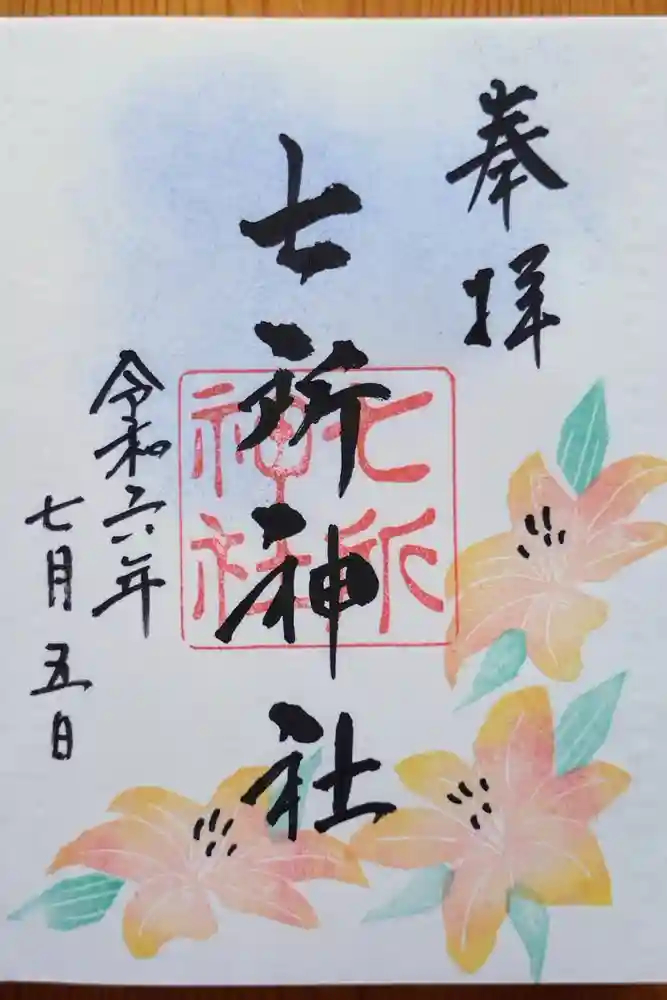 奉拝
七所神社
七所
神社
令和六年
七月五日